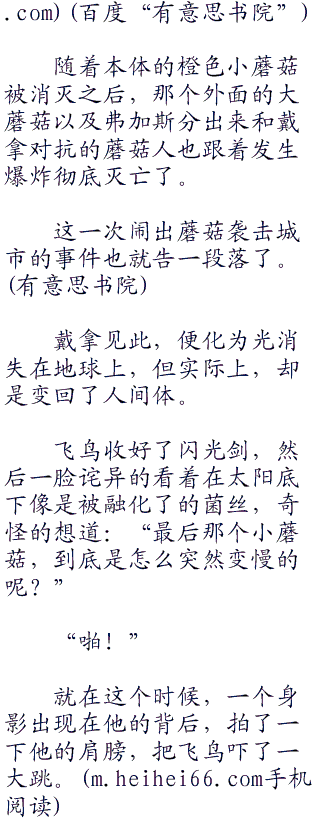 .com)(百度“有意思书院”)
随着本体的橙色小蘑菇
被消灭之后，那个外面的大
蘑菇以及弗加斯分出来和戴
拿对抗的蘑菇人也跟着发生
爆炸彻底灭亡了。
这一次闹出蘑菇袭击城
市的事件也就告一段落了。
(有意思书院)
戴拿见此，便化为光消
失在地球上，但实际上，却
是变回了人间体。
飞鸟收好了闪光剑，然
后一脸诧异的看着在太阳底
下像是被融化了的菌丝，奇
怪的想道：“最后那个小蘑
菇，到底是怎么突然变慢的
呢？”
“啪！”
就在这个时候，一个身
影出现在他的背后，拍了一
下他的肩膀，把飞鸟吓了一
大跳。(m.heihei66.com手机
阅读)